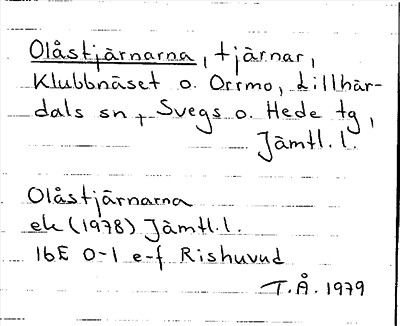 Olåstjärnarna, tjärnar,
Klubbnäset o. Orrmo, Lillhär-
dals sn, Svegs o. Hede tg,
Jämtl. l.
Olåstjärnarna
ek (1978) Jämtl. l.
16E 0-1 e-f Rishuvud
T.Å. 1979